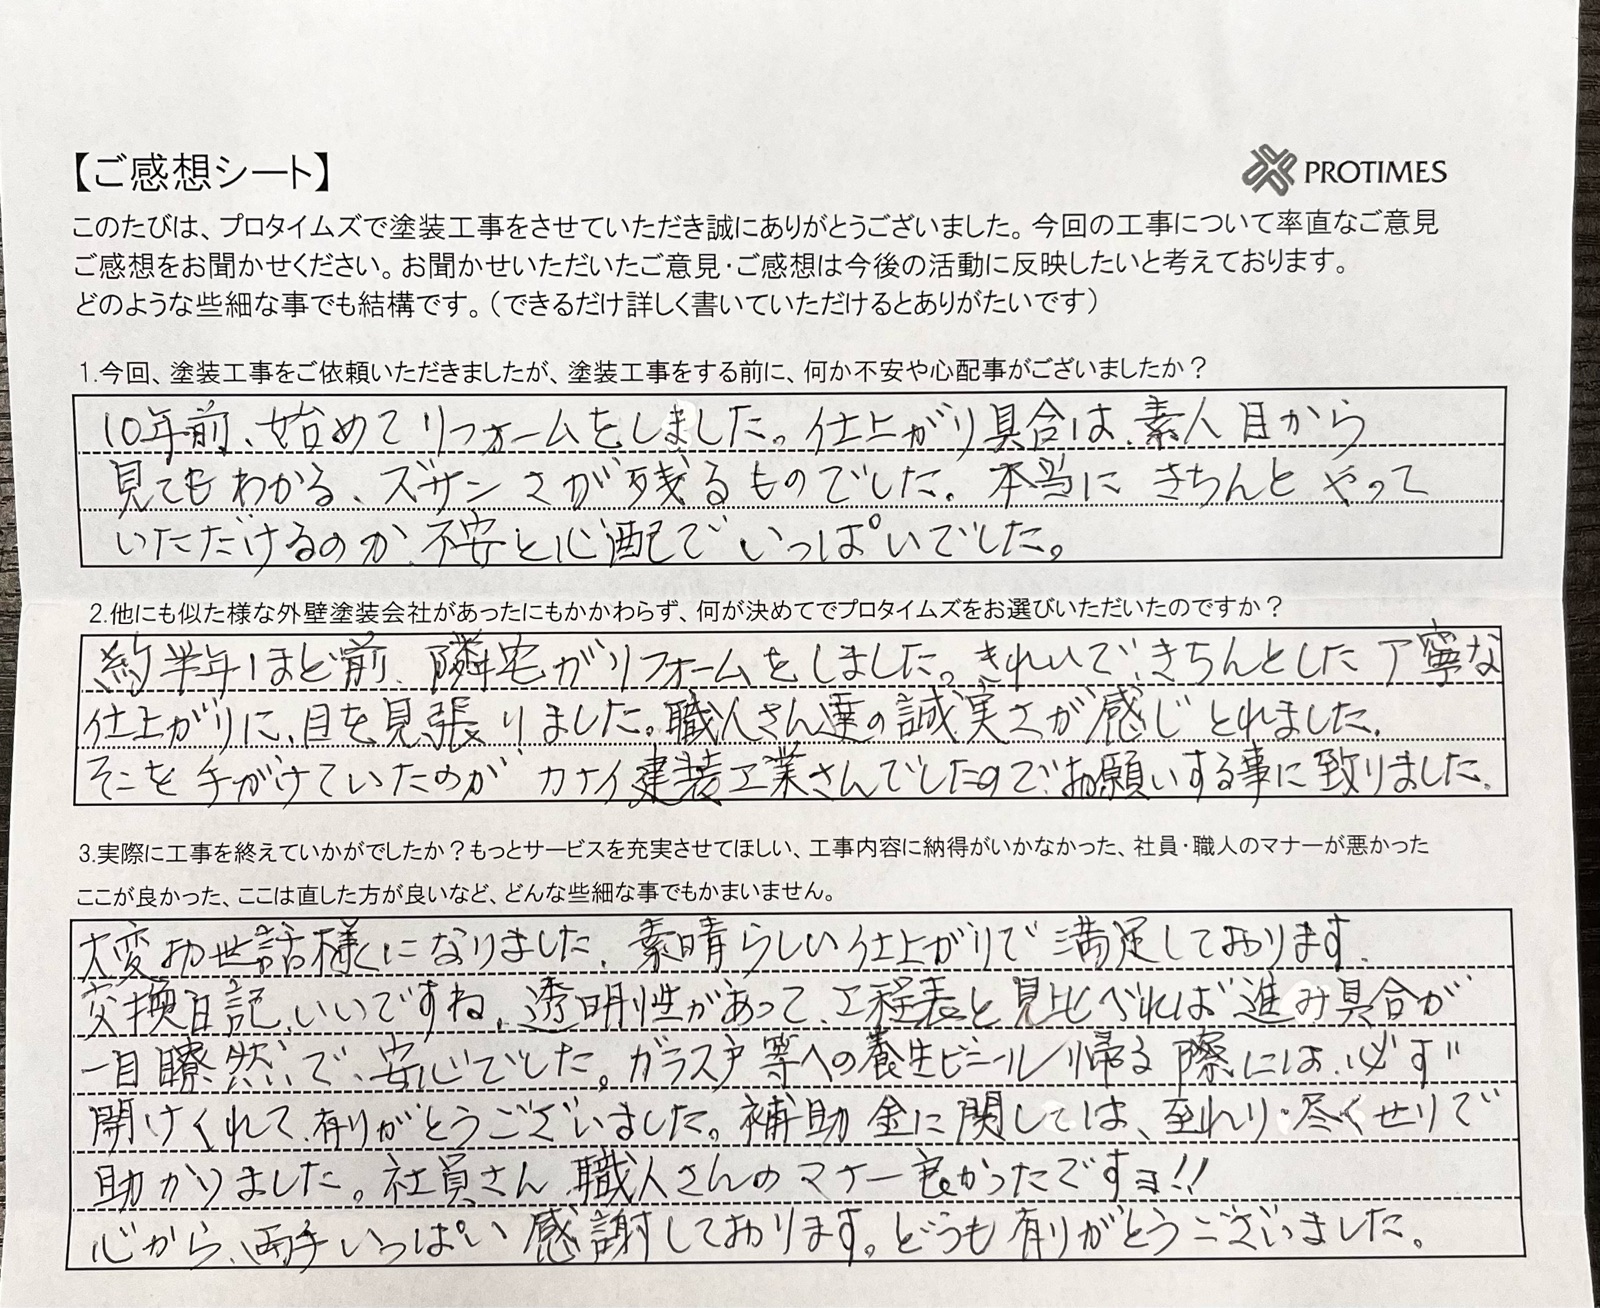 【ご感想シート】
PROTIMES
このたびは、プロタイムズで塗装工事をさせていただき誠にありがとうございました。今回の工事について率直なご意見
ご感想をお聞かせください。お聞かせいただいたご意見・ご感想は今後の活動に反映したいと考えております。
どのような些細な事でも結構です。（できるだけ詳しく書いていただけるとありがたいです）
1.今回、塗装工事をご依頼いただきましたが、塗装工事をする前に、何か不安や心配事がございましたか？
10年前、始めてリフォームをしました。仕上がり具合は、素人目から
見てもわかる、ズサンさが残るものでした。本当にきちんとやって
いただけるのか、不安と心配でいっぱいでした。
2.他にも似た様な外壁塗装会社があったにもかかわらず、何が決めてでプロタイムズをお選びいただいたのですか？
約半年ほど前、隣宅がリフォームをしました。きれいで、きちんとした丁寧な
仕上がりに、目を見張りました。職人さん達の誠実さが感じとれました。
そこを手がけていたのが、カナイ建装工業さんでしたので、お願いする事に致りました。
3.実際に工事を終えていかがでしたか？もっとサービスを充実させてほしい、工事内容に納得がいかなかった、社員・職人のマナーが悪かった
ここが良かった、ここは直した方が良いなど、どんな些細な事でもかまいません。
大変お世話様になりました。素晴らしい仕上がりで満足しております。
交換日記、いいですね。透明性があって、工程表と見比べれば進み具合が
一目瞭然で、安心でした。ガラス戸等への養生ビニール、帰る際には、必ず
開けくれて、有りがとうございました。補助金に関しては、至れり・尽くせりで
助かりました。社員さん、職人さんのマナー良かったですヨ!!
心から、両手いっぱい感謝しております。どうも有りがとうございました。